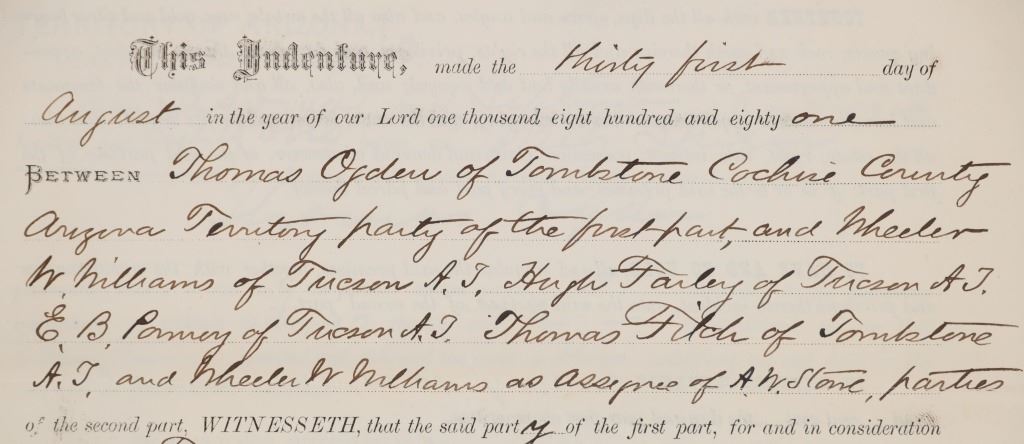 This Indenture, made the thirty first day of
August in the year of our Lord one thousand eight hundred and eighty one
BETWEEN Thomas Ogden of Tombstone Cochise County
Arizona Territory party of the first part, and Wheeler
W. Williams of Tucson A.T. Hugh Farley of Tucson A.T.
E. B. Pomroy of Tucson A.T. Thomas Fitch of Tombstone
A.T. and Wheeler W Williams as assignee of A. W. Stone, parties
of the second part, WITNESSETH, that the said party of the first part, for and in consideration